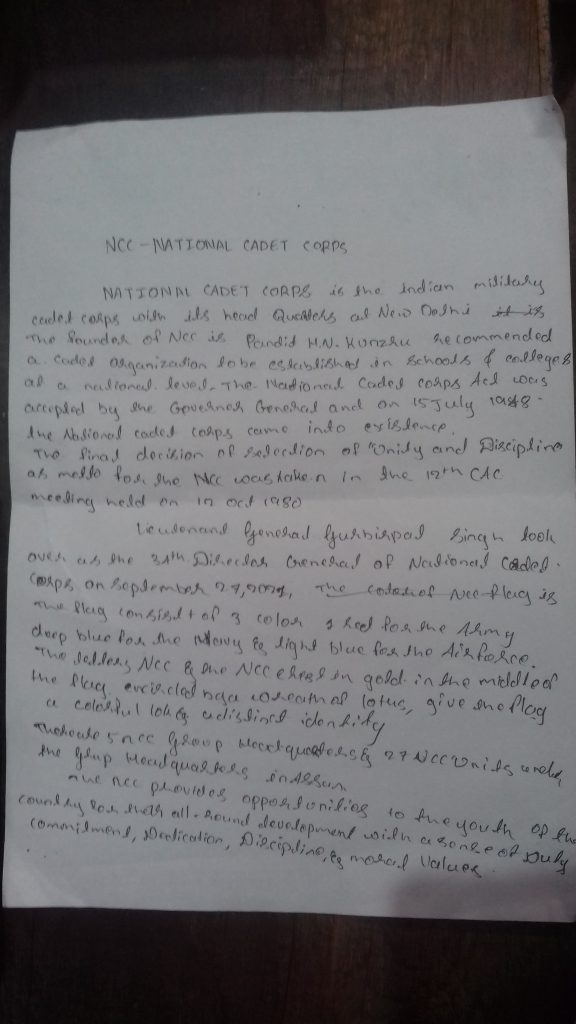 NCC - NATIONAL CADET CORPS
NATIONAL CADET CORPS is the Indian military
cadet corps with its head Quaters at New Delhi it is
The founder of NCC is Pandid H.N. Kunzru recommended
a cadet organization to be established in schools & colleges
at a national level. The National Cadet Corps Act was
accepted by the Governor General and on 15 July 1948.
the National cadet corps came into existence.
The final decision of selection of "Unity and Discipline
as motto for the NCC was taken in the 12th CAC
meeting held on 12 oct 1980
Lieutenant General Gurbirpal Singh took
over as the 34th Director General of National Caded
Corps on September 27, 2021, The color of NCC flag is
The flag consist of 3 color red for the Army
deep blue for the Navy & light blue for the Airforce.
The letters NCC & the NCC crest in gold in the middle of
the flag encircled by a wreath of lotus, give the flag
a colorful look & a distinct identity
There are 5 ncc Group Headquarters & 27 NCC Units under
the grup Headquarters in Assam
The NCC provides opportunities to the youth of the
country for their all-round development with a sense of Duty
commitment, Dedication, Discipline, & moral Values.